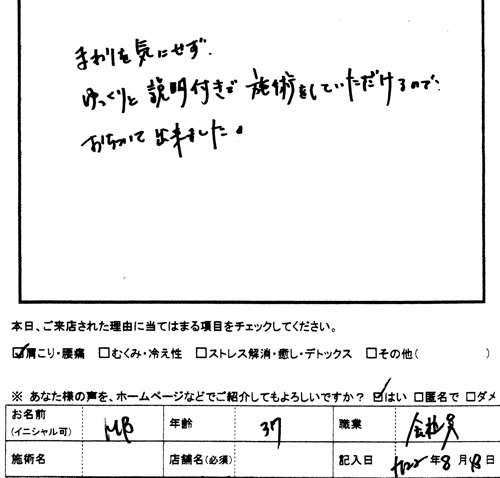 まわりを気にせず、
ゆっくりと説明付きで施術をしていただけるので、
おちついて出来ました。
本日、ご来店された理由に当てはまる項目をチェックしてください。
☑肩こり・腰痛 □むくみ・冷え性 □ストレス解消・癒し・デトックス □その他( )
※ あなた様の声を、ホームページなどでご紹介してもよろしいですか? ☑はい □匿名で □ダメ
お名前 (イニシャル可) 年齢 37 職業 会社員
施術名 店舗名(必須) 記入日 年8月 日